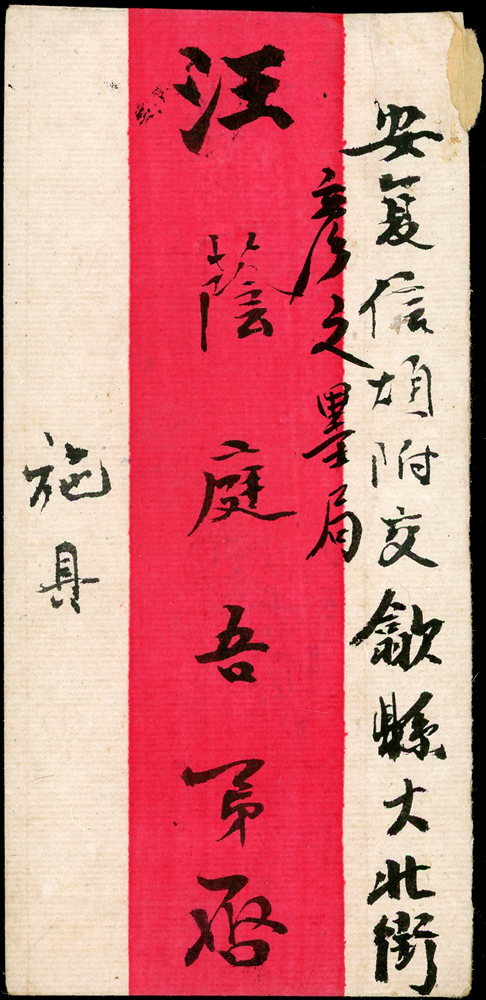 安复信項附交歙縣大北街
彥之墨局
汪蔭庭吾弟啓
施具